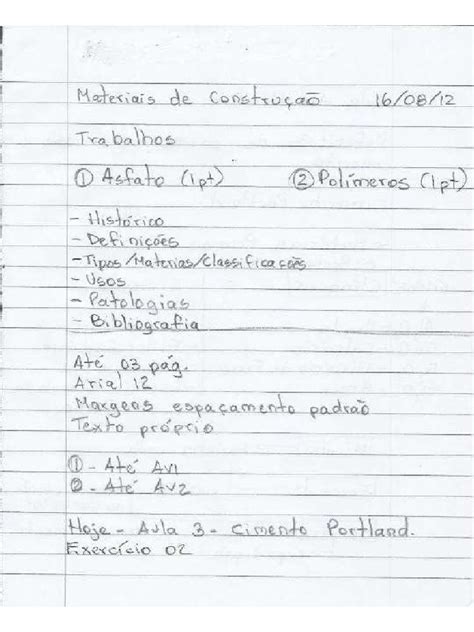 Materiais de Construção 16/08/12
Trabalhos
① Asfato (1pt) ② Polímeros (1pt)
- Histórico
- Definições
- Tipos/Materias/Classificações
- Usos
- Patologias
- Bibliografia
Até 03 pág.
Arial 12
Margeas espaçamento padrão
Texto próprio
① - Até Av1
② - Até Av2
Hoje - Aula 3 - Cimento Portland.
Exercício 02